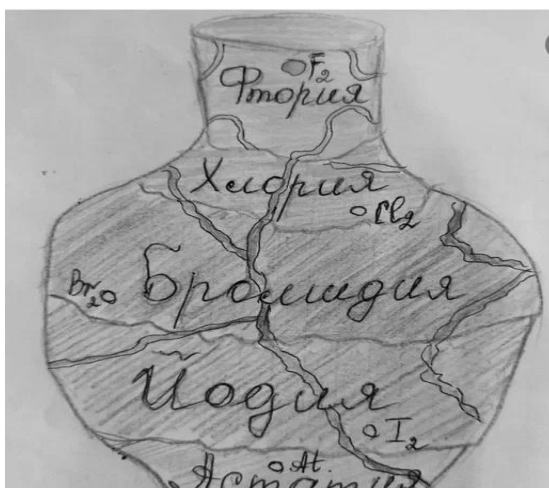 F₂
Фтория
Хлория
Cl₂
Бромидия
Br₂
Йодия
I₂
At
Астатия